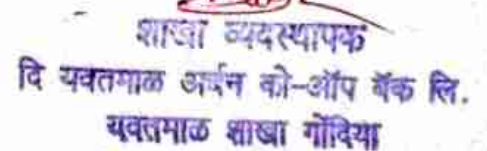 शाखा व्यवस्थापक
दि यवतमाळ अर्बन को-ऑप बँक लि.
यवतमाळ शाखा गोंदिया